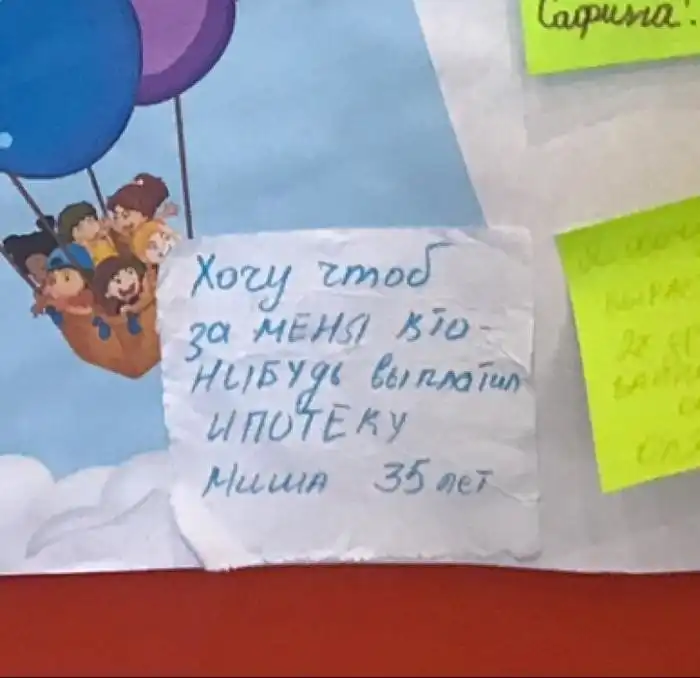 Сафина!
Хочу чтоб
за МЕНЯ кто-
НИБУДЬ выплатил
ИПОТЕКУ
Миша 35 лет